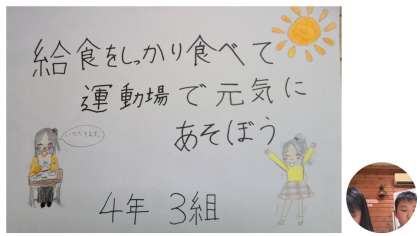 給食をしっかり食べて
運動場で元気に
あそぼう
いただきます
4年 3組